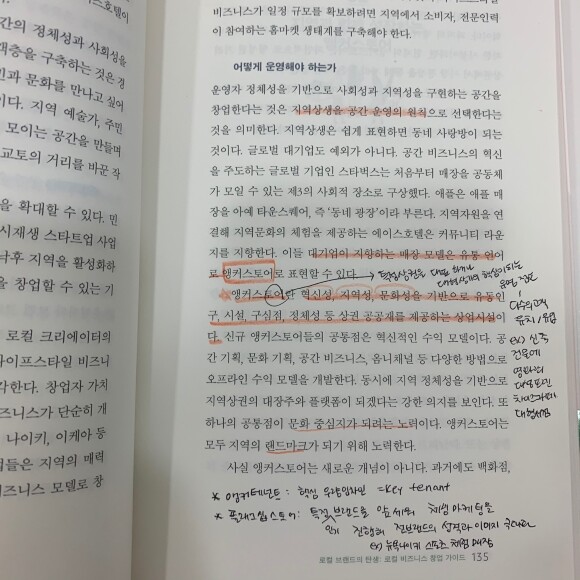 스호텔이
간의 정체성과 사회성을
객층을 구축하는 것은 경
민과 문화를 만나고 싶어
이다. 지역 예술가, 주민
모이는 공간을 만들며
교토의 거리를 바꾼 작
을 확대할 수 있다. 민
시재생 스타트업 사업
낙후 지역을 활성화하
을 창업할 수 있는 기
로컬 크리에이터의
라이프스타일 비즈니
각한다. 창업자 가치
비즈니스가 단순히 개
나이키, 이케아 등
업들은 지역의 매력
비즈니스 모델로 창
비즈니스가 일정 규모를 확보하려면 지역에서 소비자, 전문인력
이 참여하는 홈마켓 생태계를 구축해야 한다.
어떻게 운영해야 하는가
운영자 정체성을 기반으로 사회성과 지역성을 구현하는 공간을
창업한다는 것은 지역상생을 공간 운영의 원칙으로 선택한다는
것을 의미한다. 지역상생은 쉽게 표현하면 동네 사랑방이 되는
것이다. 글로벌 대기업도 예외가 아니다. 공간 비즈니스의 혁신
을 주도하는 글로벌 기업인 스타벅스는 처음부터 매장을 공동체
가 모일 수 있는 제3의 사회적 장소로 구상했다. 애플은 애플 매
장을 아예 타운스퀘어, 즉 ‘동네 광장’이라 부른다. 지역자원을 연
결해 지역문화의 체험을 제공하는 에이스호텔은 커뮤니티 라운
지를 지향한다. 이들 대기업이 지향하는 매장 모델은 유통 언어
로 앵커스토어로 표현할 수 있다.
앵커스토어란 혁신성, 지역성, 문화성을 기반으로 유동인
구, 시설, 구심점, 정체성 등 상권 공공재를 제공하는 상업시설이
다. 신규 앵커스토어들의 공통점은 혁신적인 수익 모델이다. 공
간 기획, 문화 기획, 공간 비즈니스, 옴니채널 등 다양한 방법으로
오프라인 수익 모델을 개발한다. 동시에 지역 정체성을 기반으로
지역상권의 대장주와 플랫폼이 되겠다는 강한 의지를 보인다. 또
하나의 공통점이 문화 중심지가 되려는 노력이다. 앵커스토어는
모두 지역의 랜드마크가 되기 위해 노력한다.
사실 앵커스토어는 새로운 개념이 아니다. 과거에도 백화점,
다수의 고객
유치/유입
ex) 신축
건물에
영화관
* 앵커테넌트: 핵심 우량임차인 = Key tenant
* 플래그십 스토어: 특정 브랜드를 앞세워 체험 마케팅을
진행해 전브랜드의 성격과 이미지 극대화
ex) 뉴욕 나이키 스포츠 체험매장
로컬 브랜드의 탄생: 로컬 비즈니스 창업 가이드 135